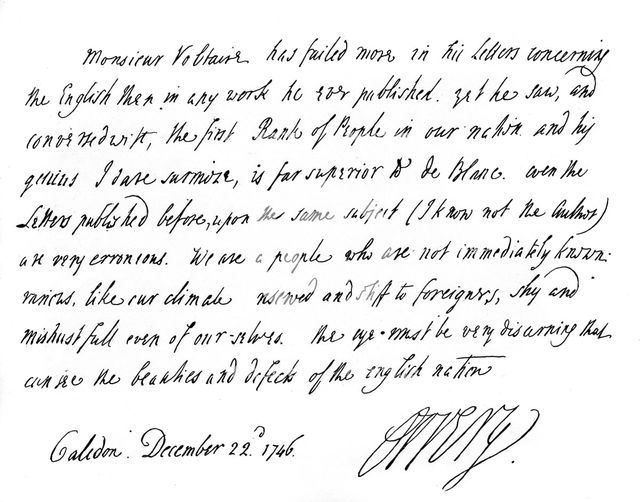 Monsieur Voltaire has failed more in his Letters concerning
the English than in any work he ever published. yet he saw, and
conversed with, the first Rank of People in our nation. and his
genius I dare surmize, is far superior to de Blanc. even the
Letters published before, upon the same subject (I know not the Author)
are very erronious. We are a people who are not immediately known.
various, like our climate reserved and stiff to foreigners, shy and
mistrustfull even of our-selves. the eye must be very discerning that
can see the beauties and defects of the english nation
Caledon. December 22.d 1746.
Orrery.